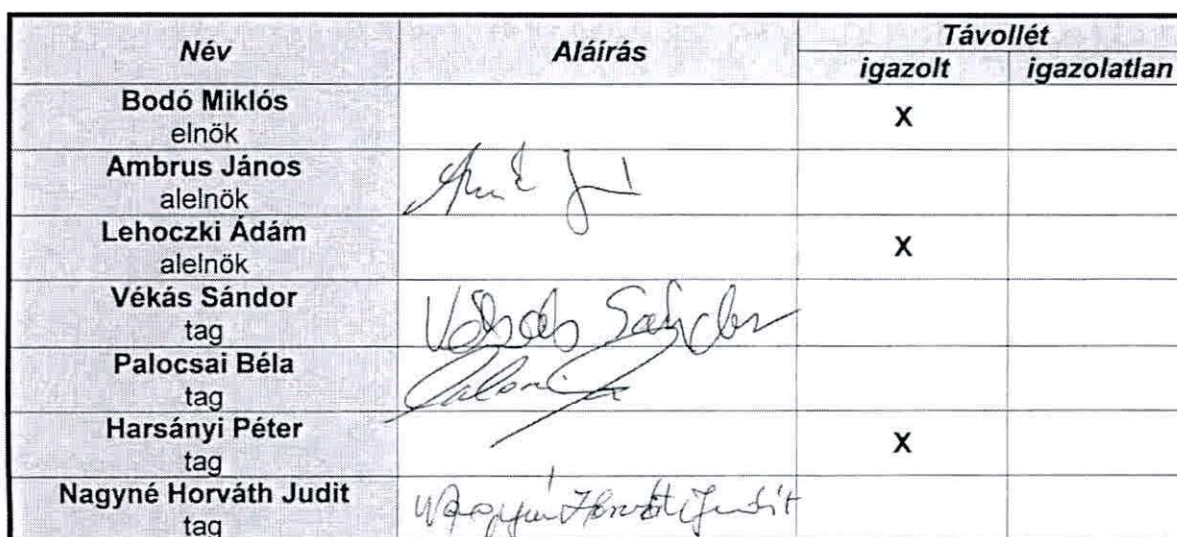 Név Aláírás Távollét
igazolt igazolatlan
Bodó Miklós
elnök
X
Ambrus János
alelnök
Lehoczki Ádám
alelnök
X
Végás Sándor
tag
Vékás Sándor
Palocsai Béla
tag
Harsányi Péter
tag
X
Nagyné Horváth Judit
tag
Nagyné Horváth Judit